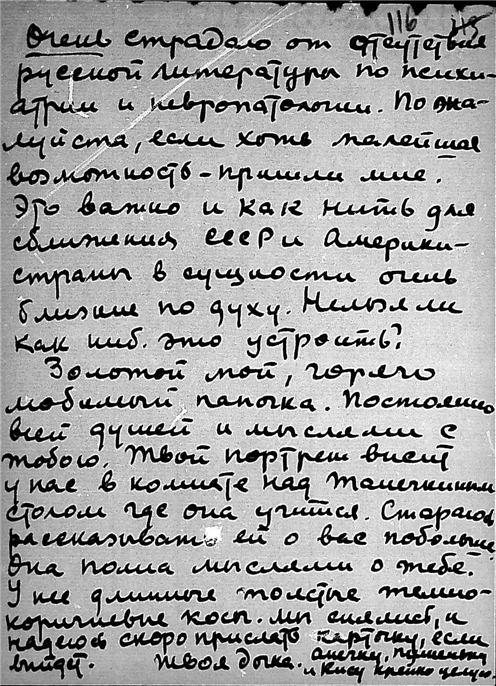 116 45
Очень страдаю от отсутствия
русской литературы по психи-
атрии и невропатологии. Пожа-
луйста, если хоть малейшая
возможность - пришли мне.
Это важно и как нить для
сближения СССР и Америки-
страны в сущности очень
близкие по духу. Нельзя ли
как ниб. это устроить?
Золотой мой, горячо
любимый папочка. Постоянно
всей душей и мыслями с
тобою. Твой портрет висит
у нас в комнате над Танечкиным
столом где она учится. Стараюсь
рассказывать ей о вас побольше.
Она полна мыслями о тебе.
У нее длинные толстые темно-
коричневые косы. Мы снялись, и
надеюсь скоро прислать карточку, если
выйдет. Твоя дочка. Анечку,
и Кису крепко целую.